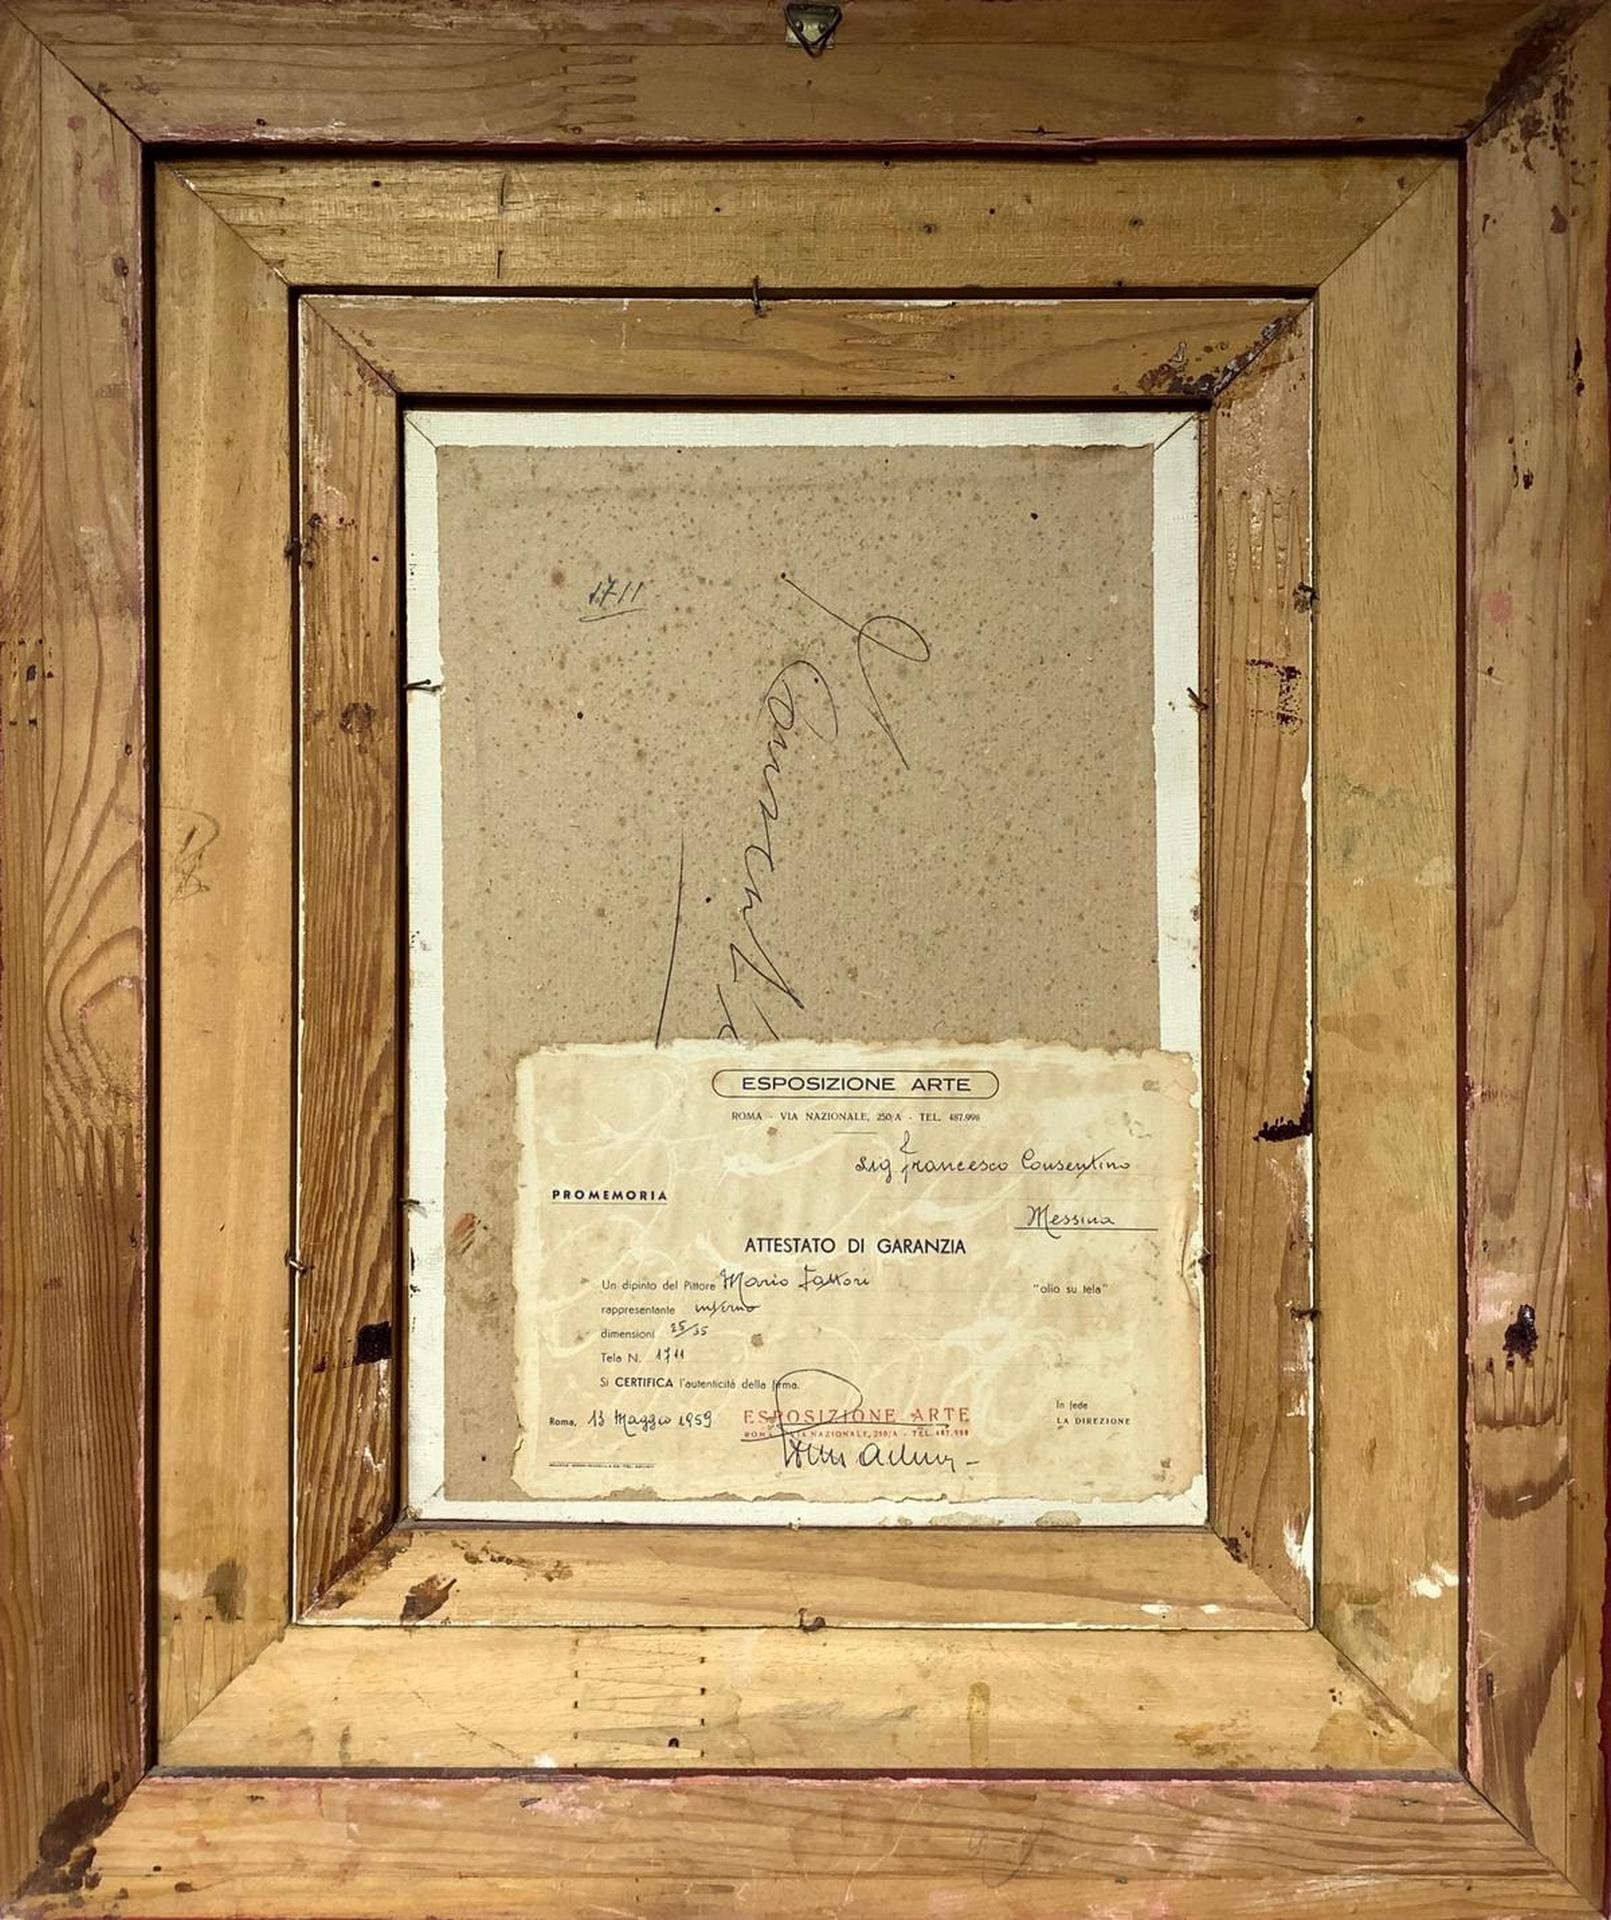 1711
Consenti
ESPOSIZIONE ARTE
ROMA - VIA NAZIONALE, 250/A - TEL. 487.998
Sig Francesco Consentino
PROMEMORIA
Messina
ATTESTATO DI GARANZIA
Un dipinto del Pittore Mario Fattori "olio su tela"
rappresentante inferno
dimensioni 25/35
Tela N. 1711
Si CERTIFICA l'autenticità della firma.
In fede
Roma, 13 Maggio 1959 ESPOSIZIONE ARTE LA DIREZIONE
ROMA - VIA NAZIONALE, 250/A - TEL. 487.998